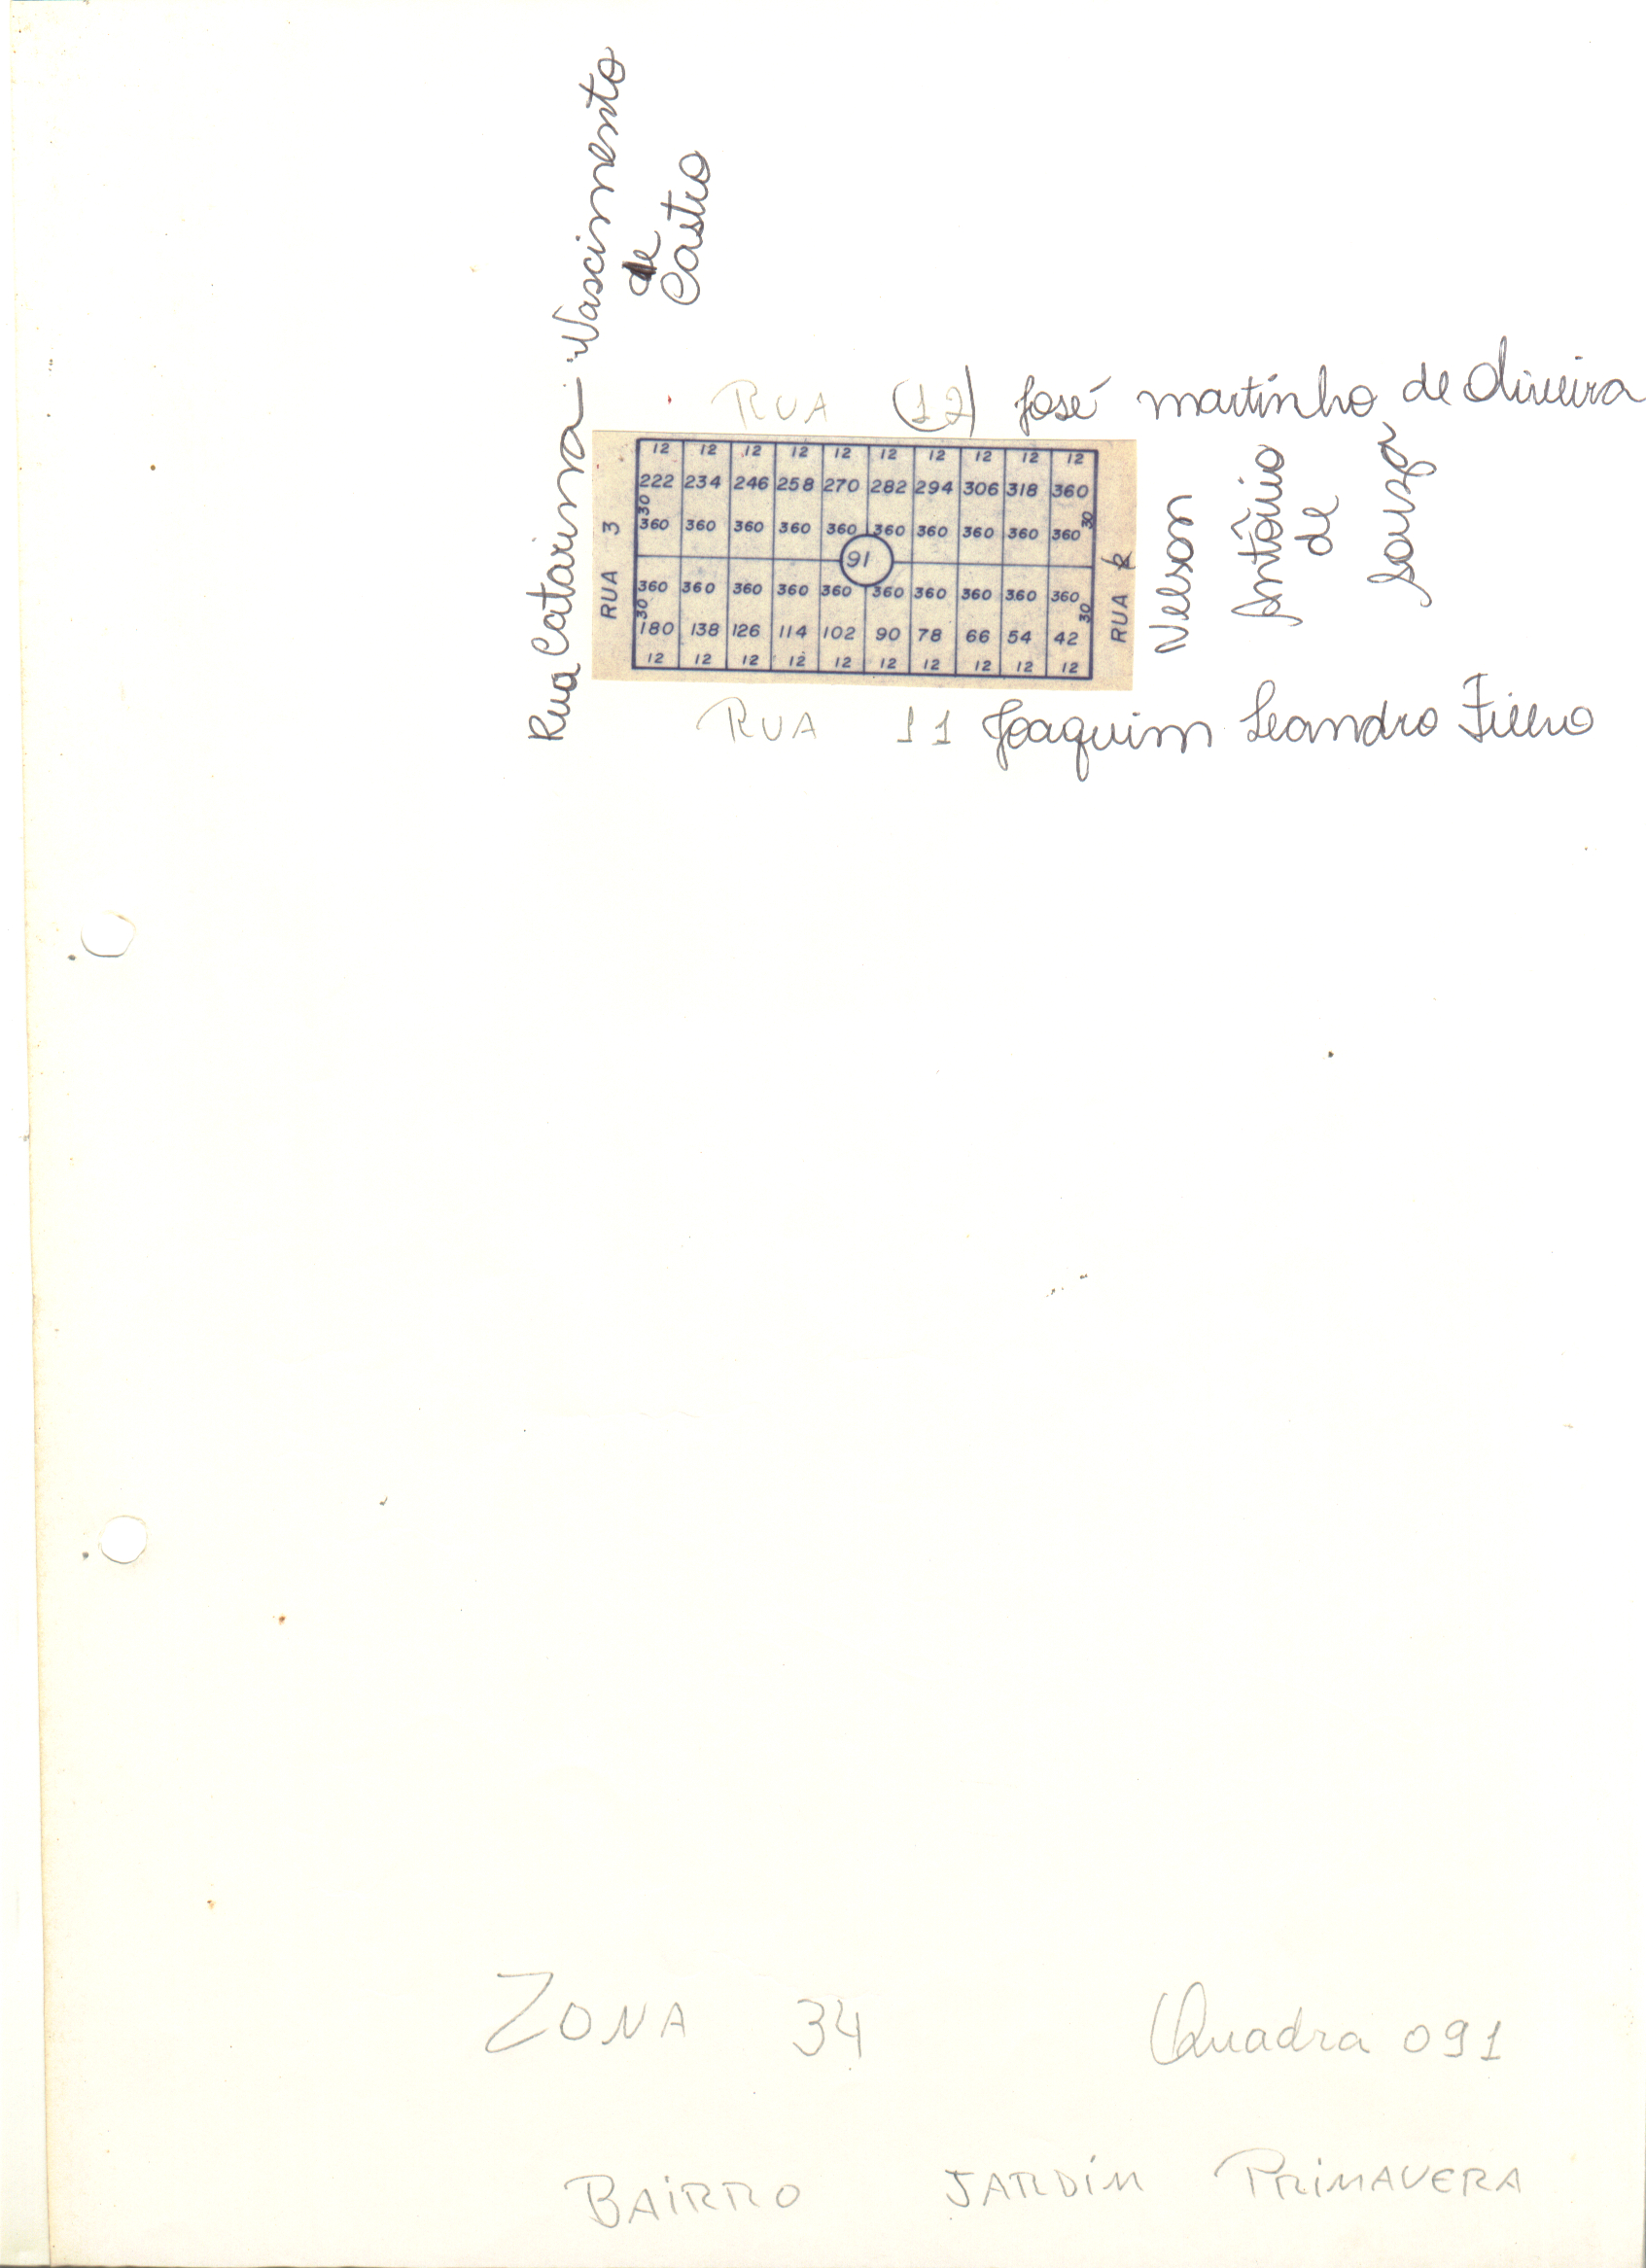 Rua Catarina Nascimento
de
Castro
RUA (12) José martinho de Oliveira
12 12 12 12 12 12 12 12 12 12
222 234 246 258 270 282 294 306 318 360
30 30
360 360 360 360 360 360 360 360 360 360
RUA 3
91
RUA
Nelson
Antônio
de
Souza
360 360 360 360 360 360 360 360 360 360
30 30
180 138 126 114 102 90 78 66 54 42
12 12 12 12 12 12 12 12 12 12
RUA 11 Joaquim Leandro Filho
ZONA 34 Quadra 091
BAIRRO JARDIM PRIMAVERA